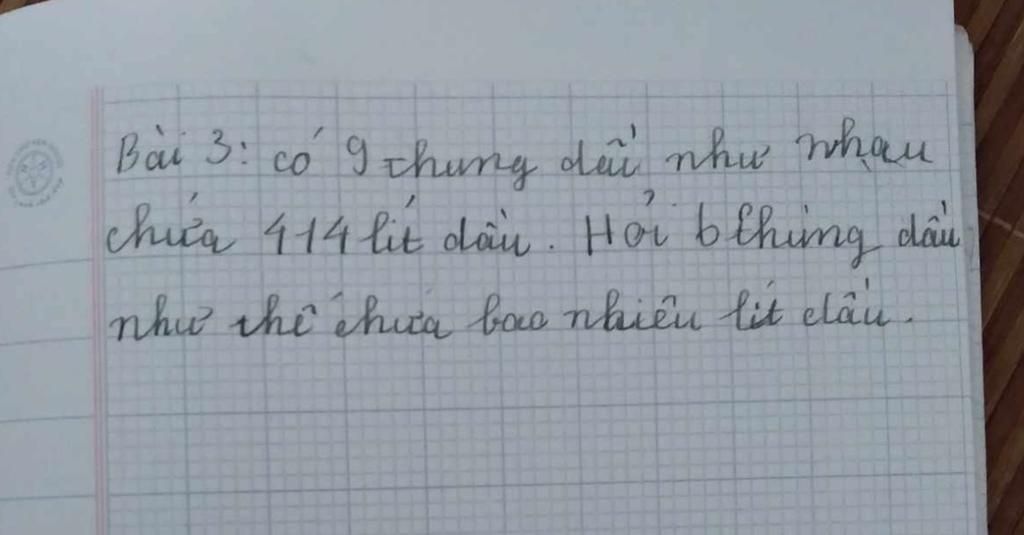 Bài 3: có 9 thung dầu như nhau
chứa 414 lít dầu. Hỏi 6 thùng dầu
như thế chứa bao nhiêu lít dầu.